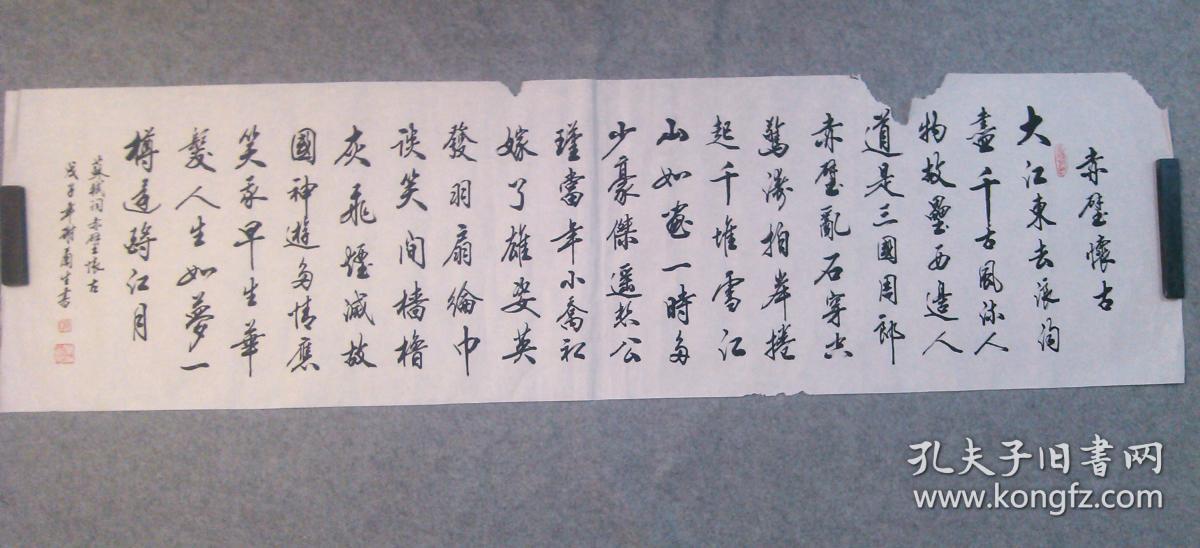 赤壁懷古
大江東去浪淘
盡千古風流人
物故壘西邊人
道是三國周郎
赤壁亂石穿空
驚濤拍岸捲
起千堆雪江
山如畫一時多
少豪傑遙想公
瑾當年小喬初
嫁了雄姿英
發羽扇綸巾
談笑間檣櫓
灰飛煙滅故
國神遊多情應
笑我早生華
髮人生如夢一
樽還酹江月
蘇軾詞赤壁懷古
戊子年生書
孔夫子旧書网
www.kongfz.com